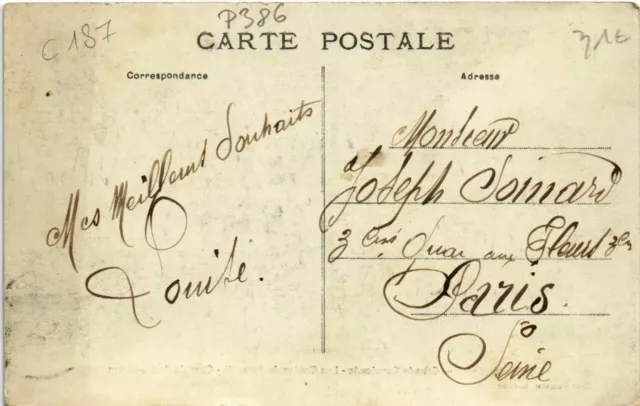 C 187
P386
CARTE POSTALE
Correspondance
Adresse
Mes Meilleurs Souhaits
Louise.
Monsieur
Joseph Soinard
3 bis Quai aux Fleurs
Paris.
Seine